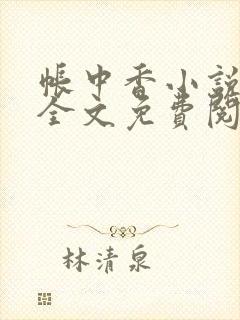 帳中香小說
全文免費閱
林清泉